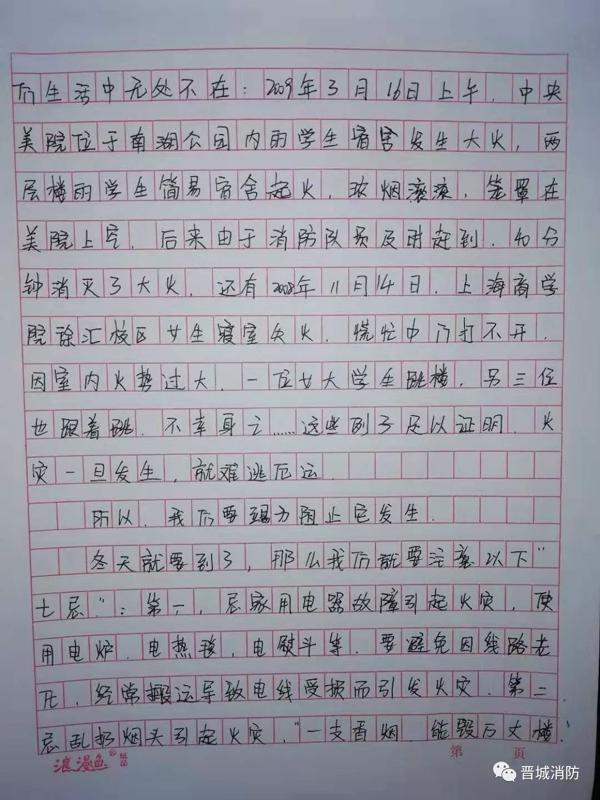 们生活中无处不在：2009年3月16日上午，中央
美院位于南湖公园内雨学生宿舍发生大火，两
层楼雨学生简易宿舍起火，浓烟滚滚，笼罩在
美院上空，后来由于消防队员及时赶到，40分
钟消灭了大火，还有2008年11月14日，上海商学
院徐汇校区女生寝室失火，慌忙中门打不开，
因室内火势过大，一位女大学生跳楼，另三位
也跟着跳，不幸身亡……这些例子足以证明，火
灾一旦发生，就难逃厄运.
所以，我们要竭力阻止它发生.
冬天就要到了，那么我们就要注意以下“
七忌”：第一，忌家用电器故障引起火灾，使
用电炉，电热毯，电熨斗等，要避免因线路老
化，经常搬运导致电线受损而引发火灾，第二
忌乱扔烟头引起火灾，“一支香烟，能毁万丈楼.
浪漫鱼
第 页
晋城消防